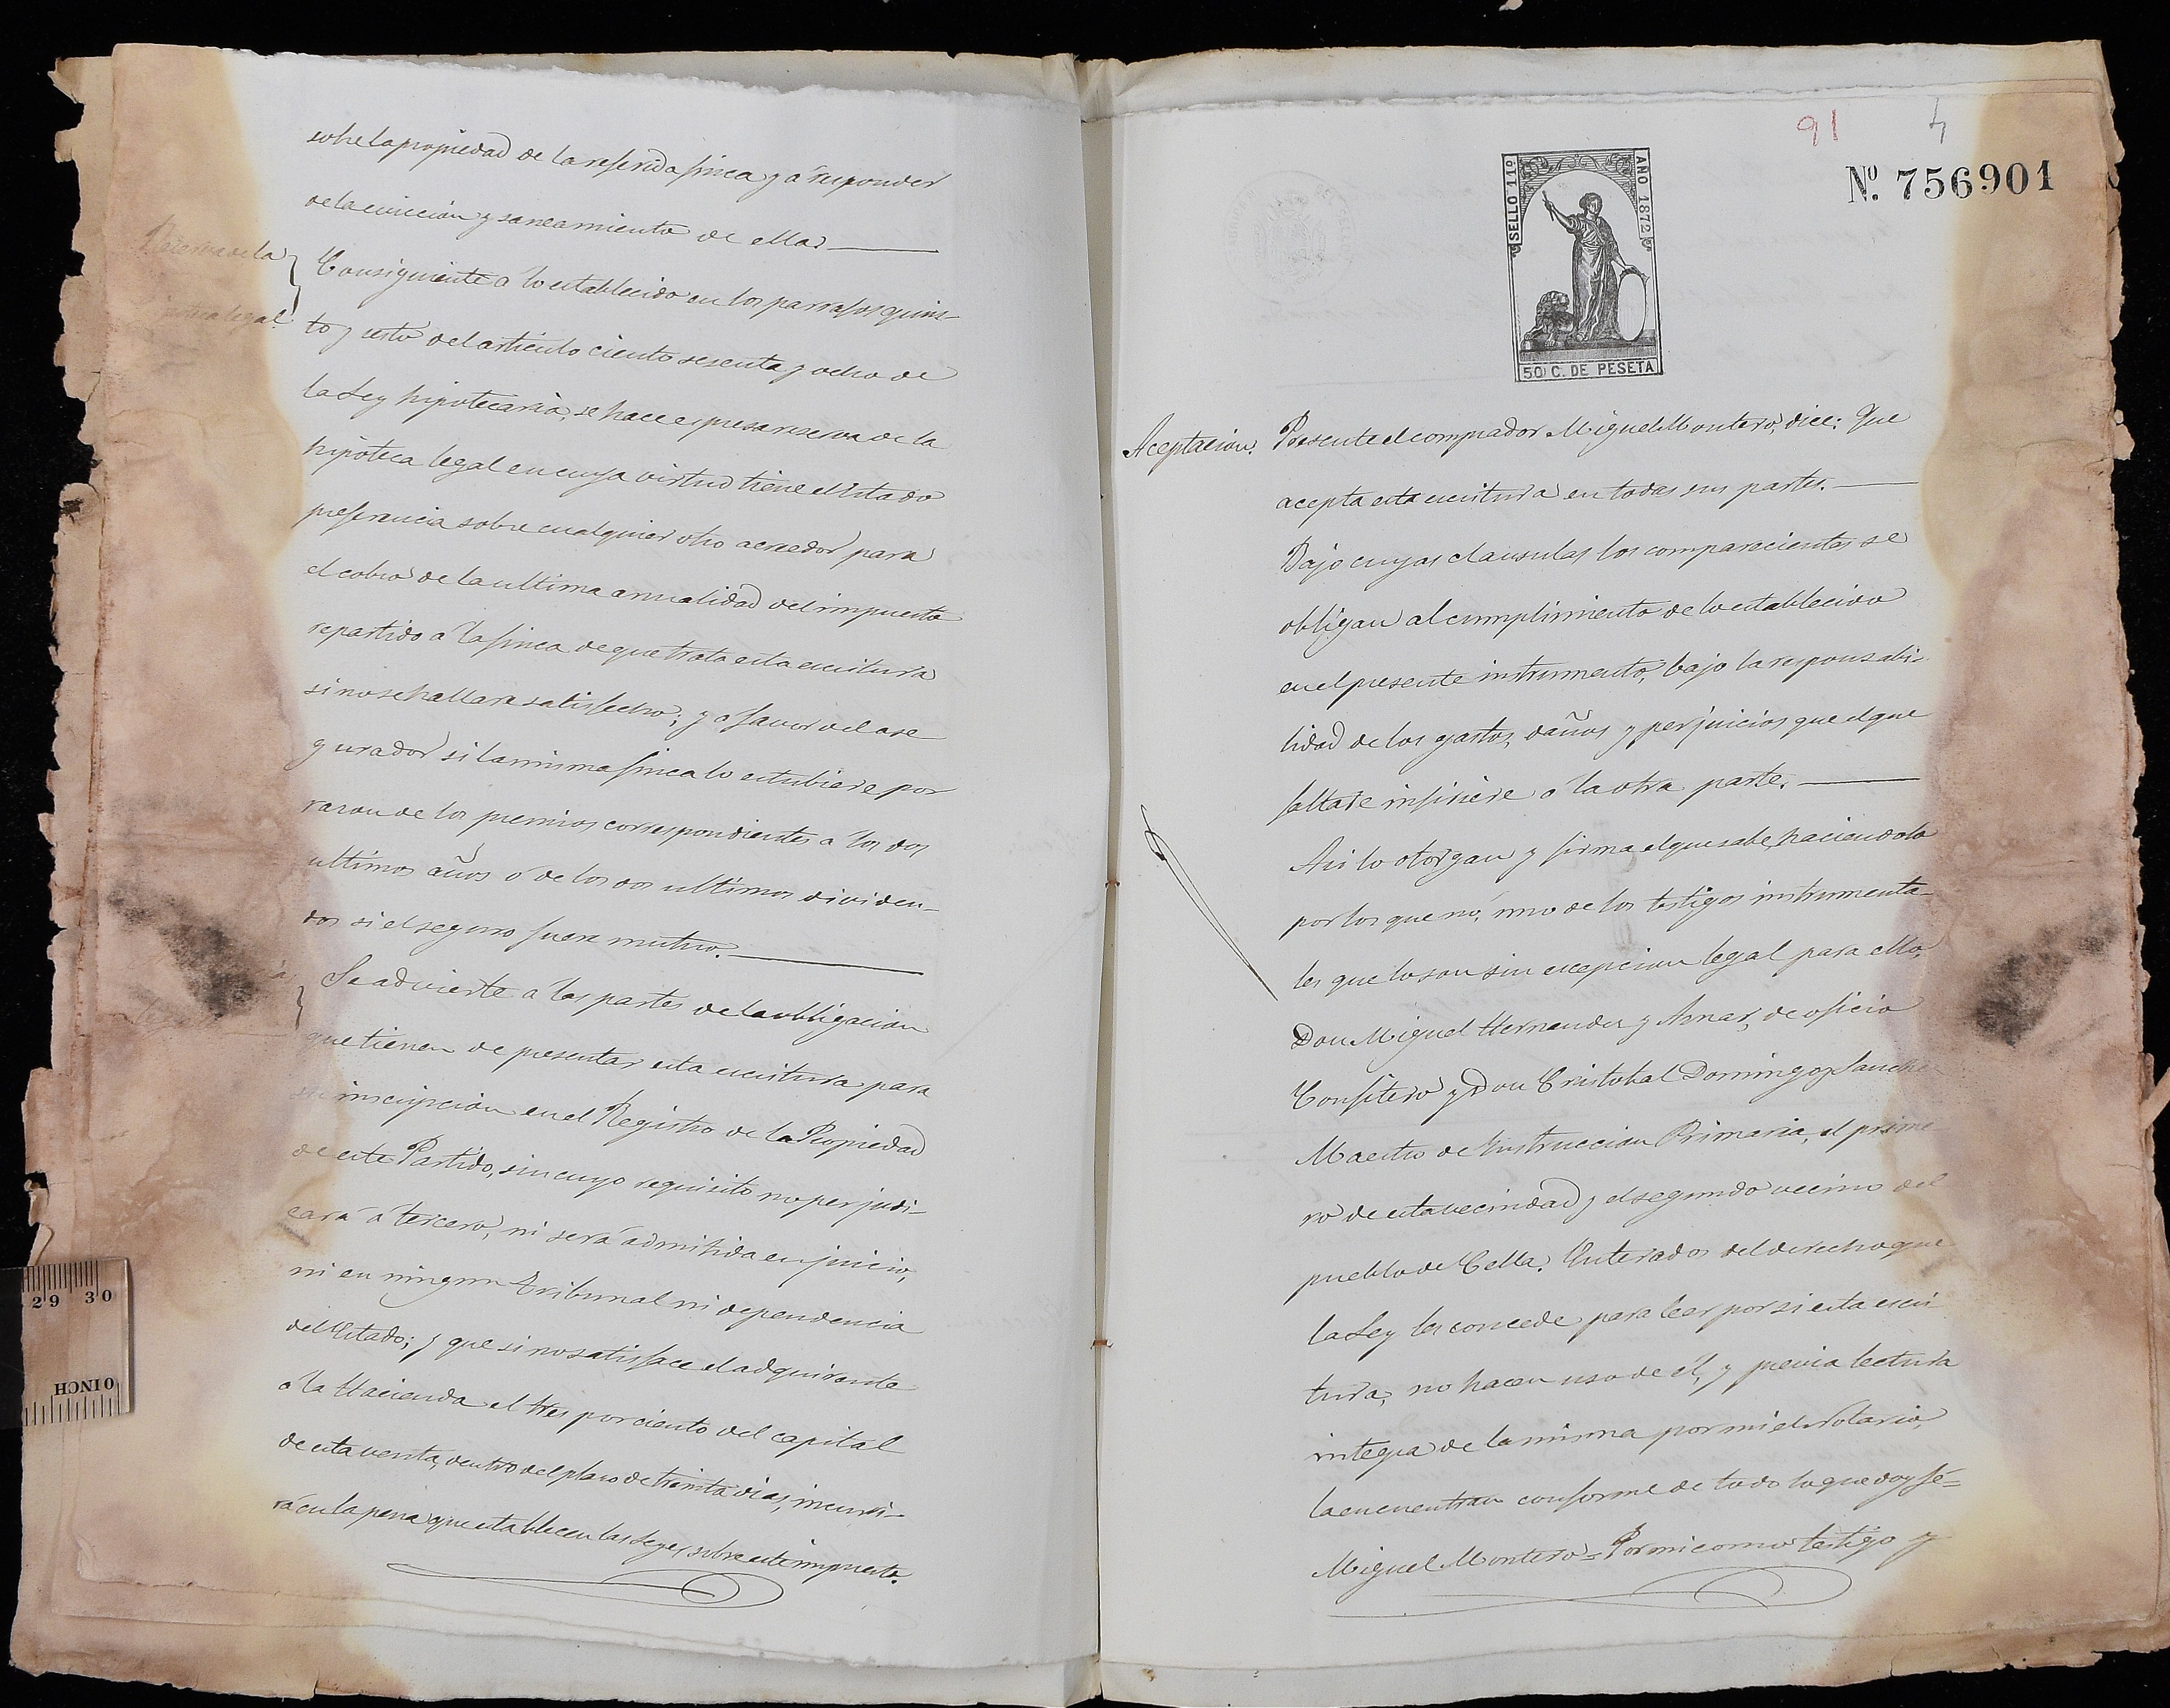 sobre la propiedad de la referida finca y á responder
de la eviccion y saneamiento de ella.
Reserva de la
hipoteca legal.
Consiguiente á lo establecido en los parrafos quin-
to y sesto del articulo ciento sesenta y ocho de
la Ley hipotecaria, se hace espresa reserva de la
hipoteca legal en cuya virtud tiene el Estado
preferencia sobre cualquier otro acreedor para
el cobro de la ultima anualidad del impuesto
repartido á la finca de que trata esta escritura
si no se hallara satisfecho; y á favor del ase-
gurador si la misma finca lo estubiere por
razon de los premios correspondientes á los dos
ultimos años ó de los dos ultimos dividen-
dos si el seguro fuera mutuo.
Se advierte á las partes de la obligacion
que tienen de presentar esta escritura para
su inscripcion en el Registro de la Propiedad
de este Partido, sin cuyo requisito no perjudi-
cará á tercero, ni será admitida en juicio,
ni en ningun Tribunal ni dependencia
del Estado; y que si no satisface el adquirente
á la Hacienda el tres por ciento del capital
de esta venta, dentro del plazo de treinta dias, incurri-
rá en la pena que establecen las Leyes sobre este impuesto.
91 4
Nº. 756901
SELLO 11º
AÑO 1872
50 C. DE PESETA
Aceptacion.
Presente el comprador Miguel Montero, dice: Que
acepta esta escritura en todas sus partes.
Bajo cuyas clausulas los comparecientes se
obligan al cumplimiento de lo establecido
en el presente instrumento, bajo la responsabi-
lidad de los gastos, daños y perjuicios que el que
faltare infiriere á la otra parte.
Asi lo otorgan y firma el que sabe, haciendolo
por los que nó, uno de los testigos instrumenta-
les que lo son sin excepcion legal para ello,
Don Miguel Hernandez y Aznar, de oficio
Confitero y Don Cristobal Domingo y Sanchez
Maestro de Instruccion Primaria, el prime
ro de esta vecindad y el segundo vecino del
pueblo de Cella. Enterados del derecho que
la Ley les concede para leer por si esta escri
tura, no hacen uso de él, y previa lectura
integra de la misma por mi el Notario,
la encuentran conforme de todo lo que doy fé=
Miguel Montero= Por mi como testigo y
29 30
0 INCH